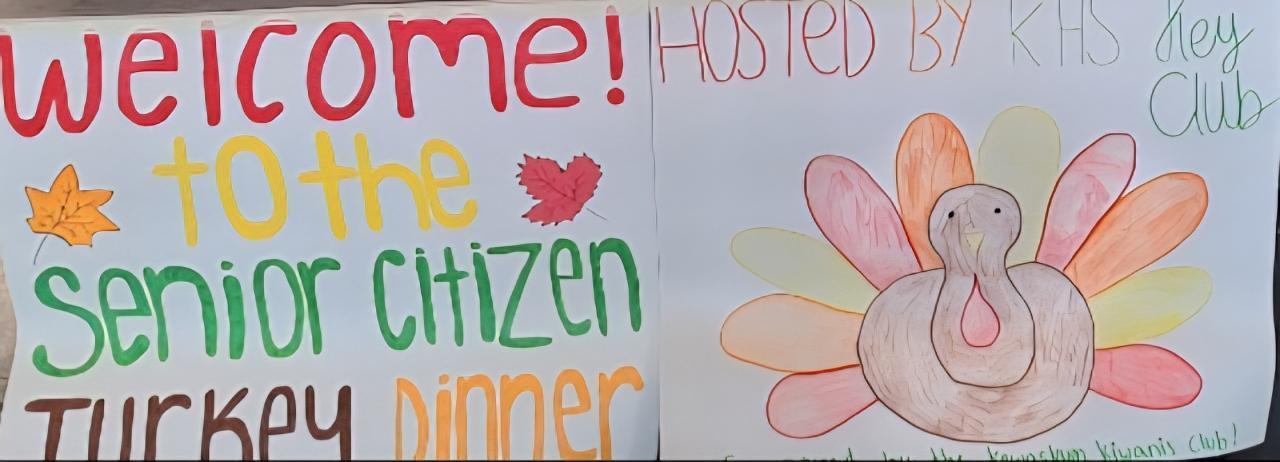 Welcome!
to the
Senior Citizen
Turkey Dinner
HOSTED BY KHS Key
Club
by the Kewaskum Kiwanis Club!